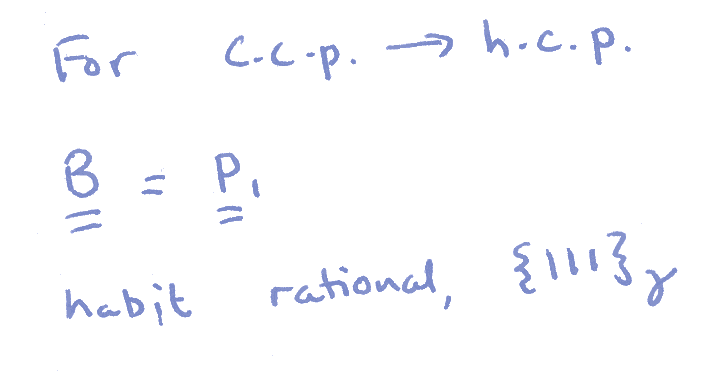 For c.c.p. → h.c.p.
B = P₁
habit rational, {111}γ